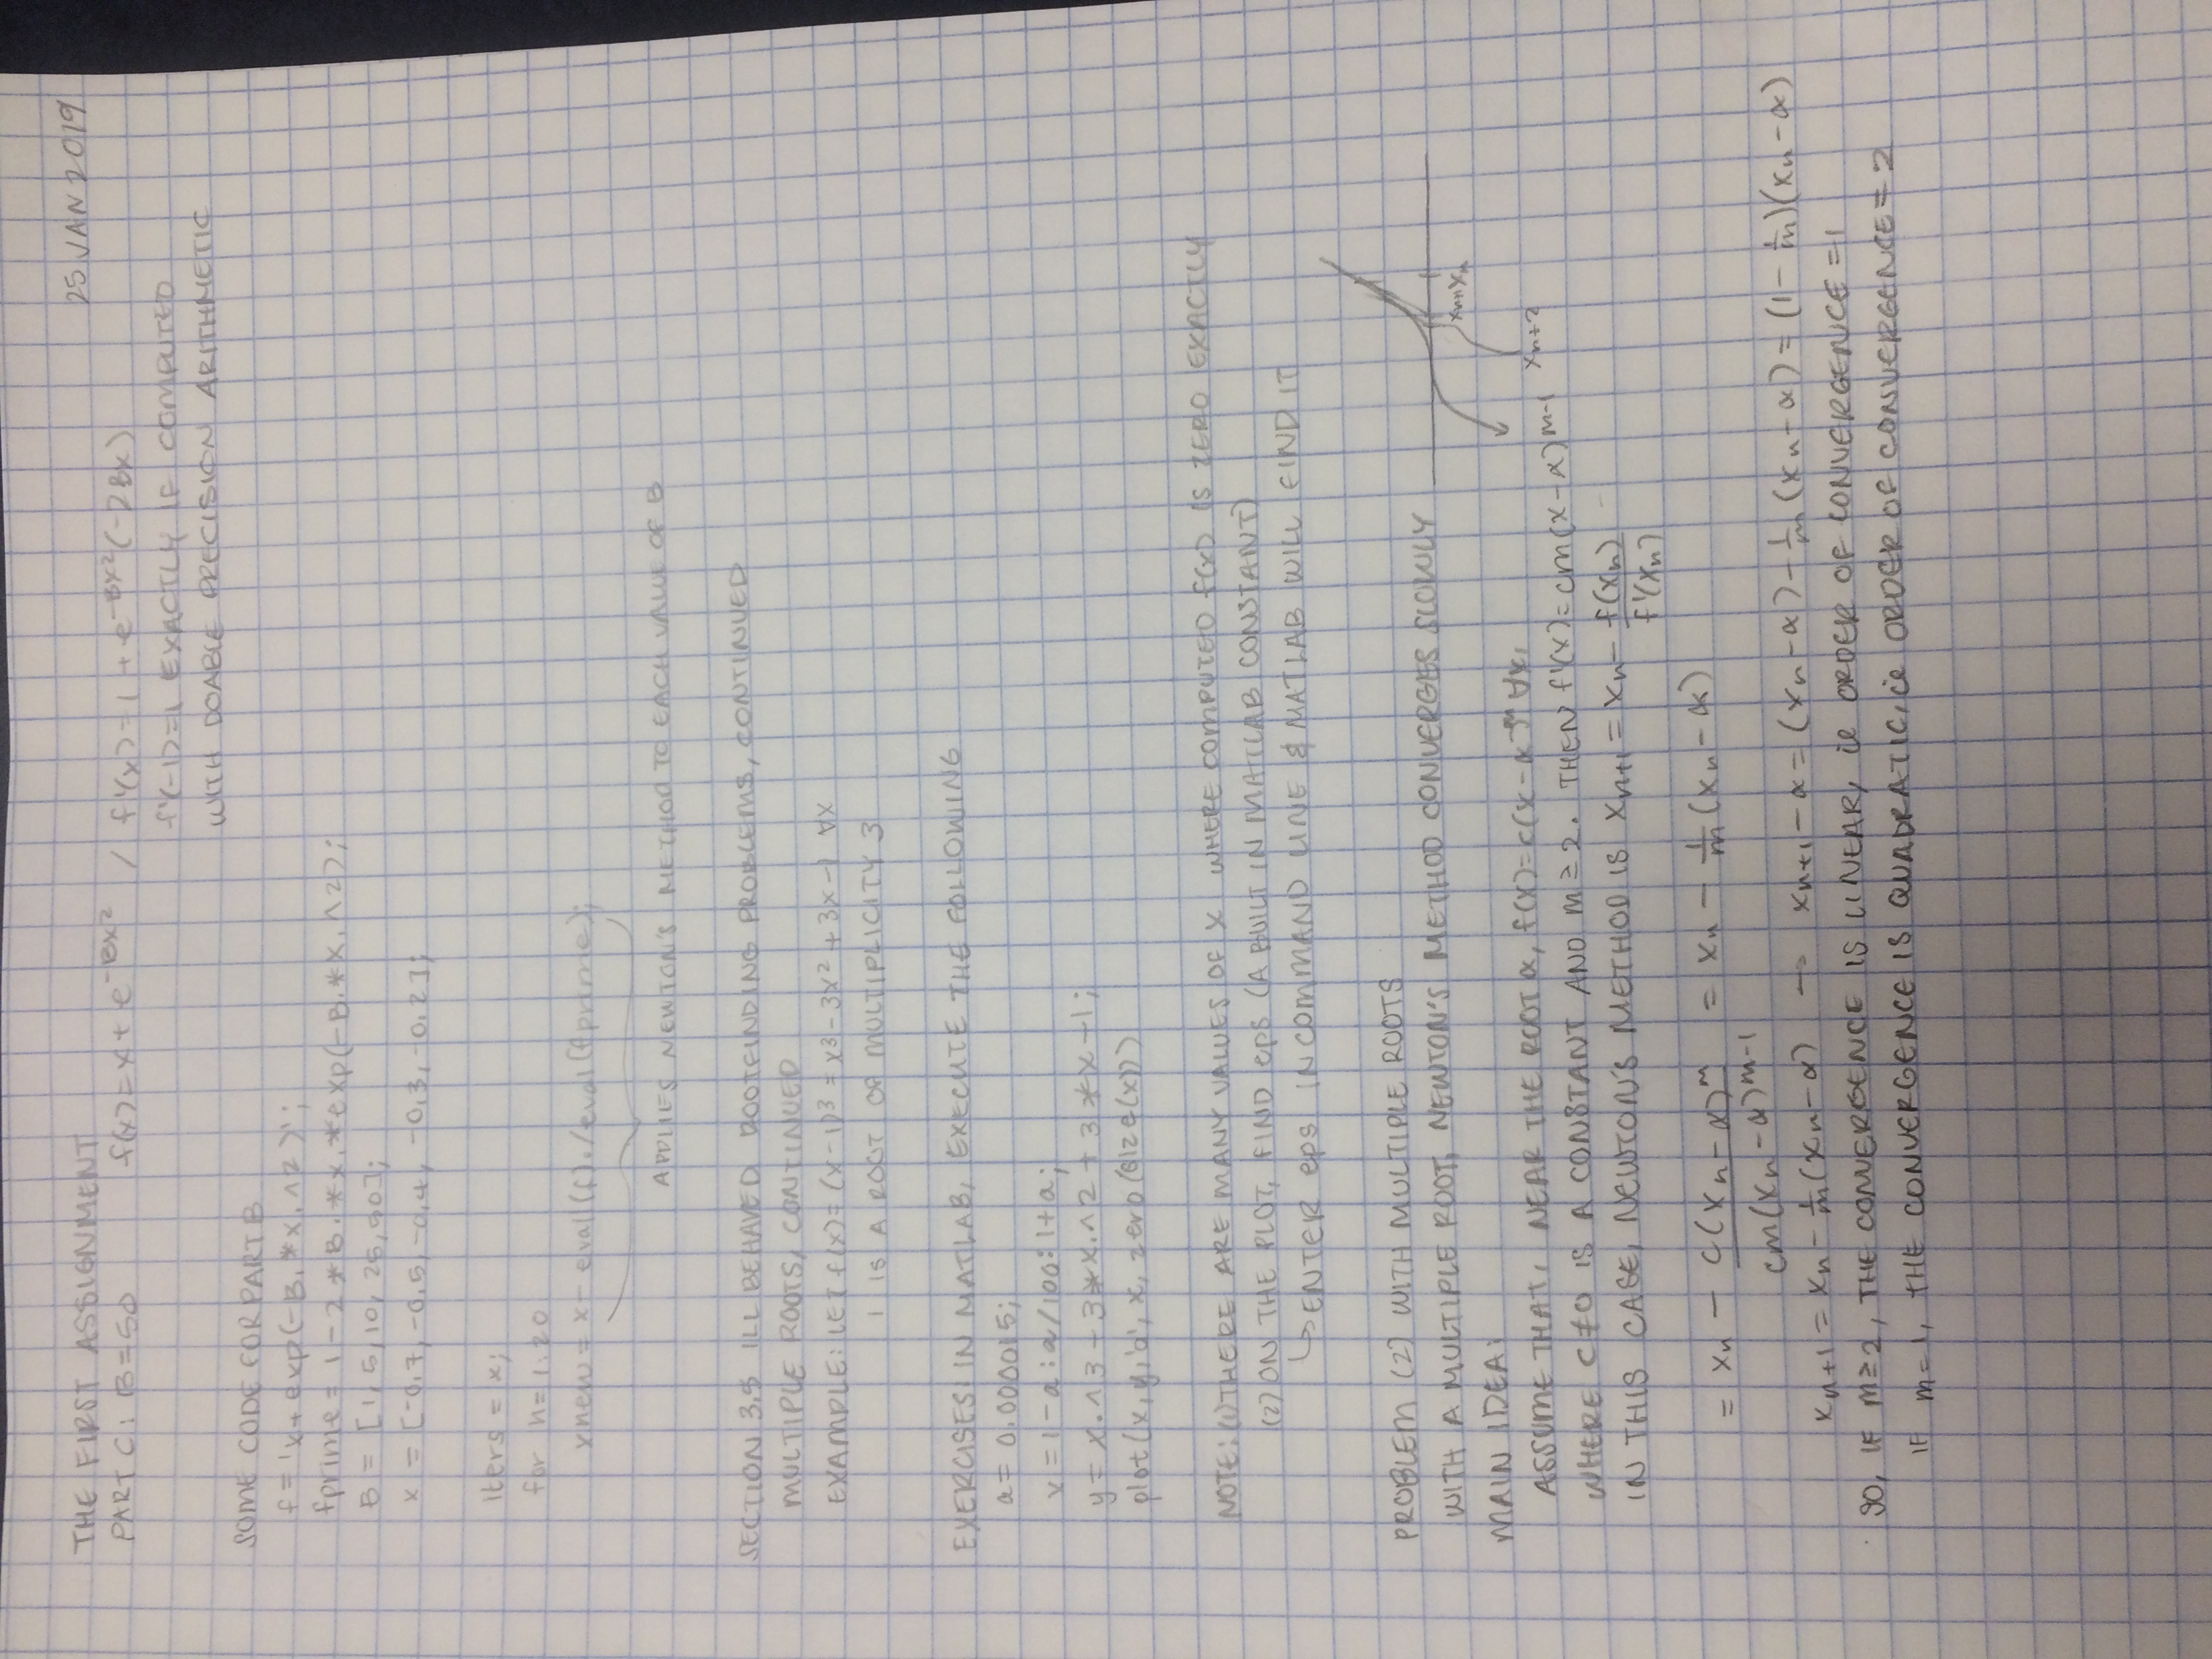 25 JAN 2019
THE FIRST ASSIGNMENT
PART C: B=50 f(x)=x+e^-Bx² / f'(x)=1+e^-Bx²(-2Bx)
f'(-1)=1 EXACTLY IF COMPUTED
WITH DOABLE PRECISION ARITHMETIC
SOME CODE FOR PART B
f='x+exp(-B.*x.^2)';
fprime=1-2*B.*x.*exp(-B.*x.^2);
B = [1,5,10,25,50];
x = [-0.7,-0.5,-0.4,-0.3,-0.2];
iters = x;
for n=1:20
xnew = x-eval(f)./eval(fprime);
APPLIES NEWTON'S METHOD TO EACH VALUE OF B
SECTION 3.5 ILL BEHAVED ROOTFINDING PROBLEMS, CONTINUED
MULTIPLE ROOTS, CONTINUED
EXAMPLE: LET f(x)=(x-1)³=x³-3x²+3x-1 ∀x
1 IS A ROOT OF MULTIPLICITY 3
EXERCISES IN MATLAB, EXECUTE THE FOLLOWING
a = 0.000015;
x = 1-a:a/100:1+a;
y = x.^3-3*x.^2+3*x-1;
plot(x,y,'o',x,zero(size(x)))
NOTE: (1) THERE ARE MANY VALUES OF X WHERE COMPUTED f(x) IS ZERO EXACTLY
(2) ON THE PLOT, FIND eps (A BUILT IN MATLAB CONSTANT)
↳ ENTER eps IN COMMAND LINE & MATLAB WILL FIND IT
PROBLEM (2) WITH MULTIPLE ROOTS
WITH A MULTIPLE ROOT, NEWTON'S METHOD CONVERGES SLOWLY
xn+1 xn
xn+2
MAIN IDEA:
ASSUME THAT, NEAR THE ROOT α, f(x)=c(x-α)^m ∀x,
WHERE C≠0 IS A CONSTANT AND m≥2. THEN f'(x)=cm(x-α)^m-1
IN THIS CASE, NEWTON'S METHOD IS xn+1 = xn - f(xn)/f'(xn)
= xn - c(xn-α)^m/cm(xn-α)^m-1 = xn - 1/m(xn-α)
xn+1 = xn - 1/m(xn-α) → xn+1-α=(xn-α)-1/m(xn-α)=(1-1/m)(xn-α)
SO, IF m≥2, THE CONVERGENCE IS LINEAR, ie ORDER OF CONVERGENCE=1
IF m=1, THE CONVERGENCE IS QUADRATIC, ie ORDER OF CONVERGENCE=2